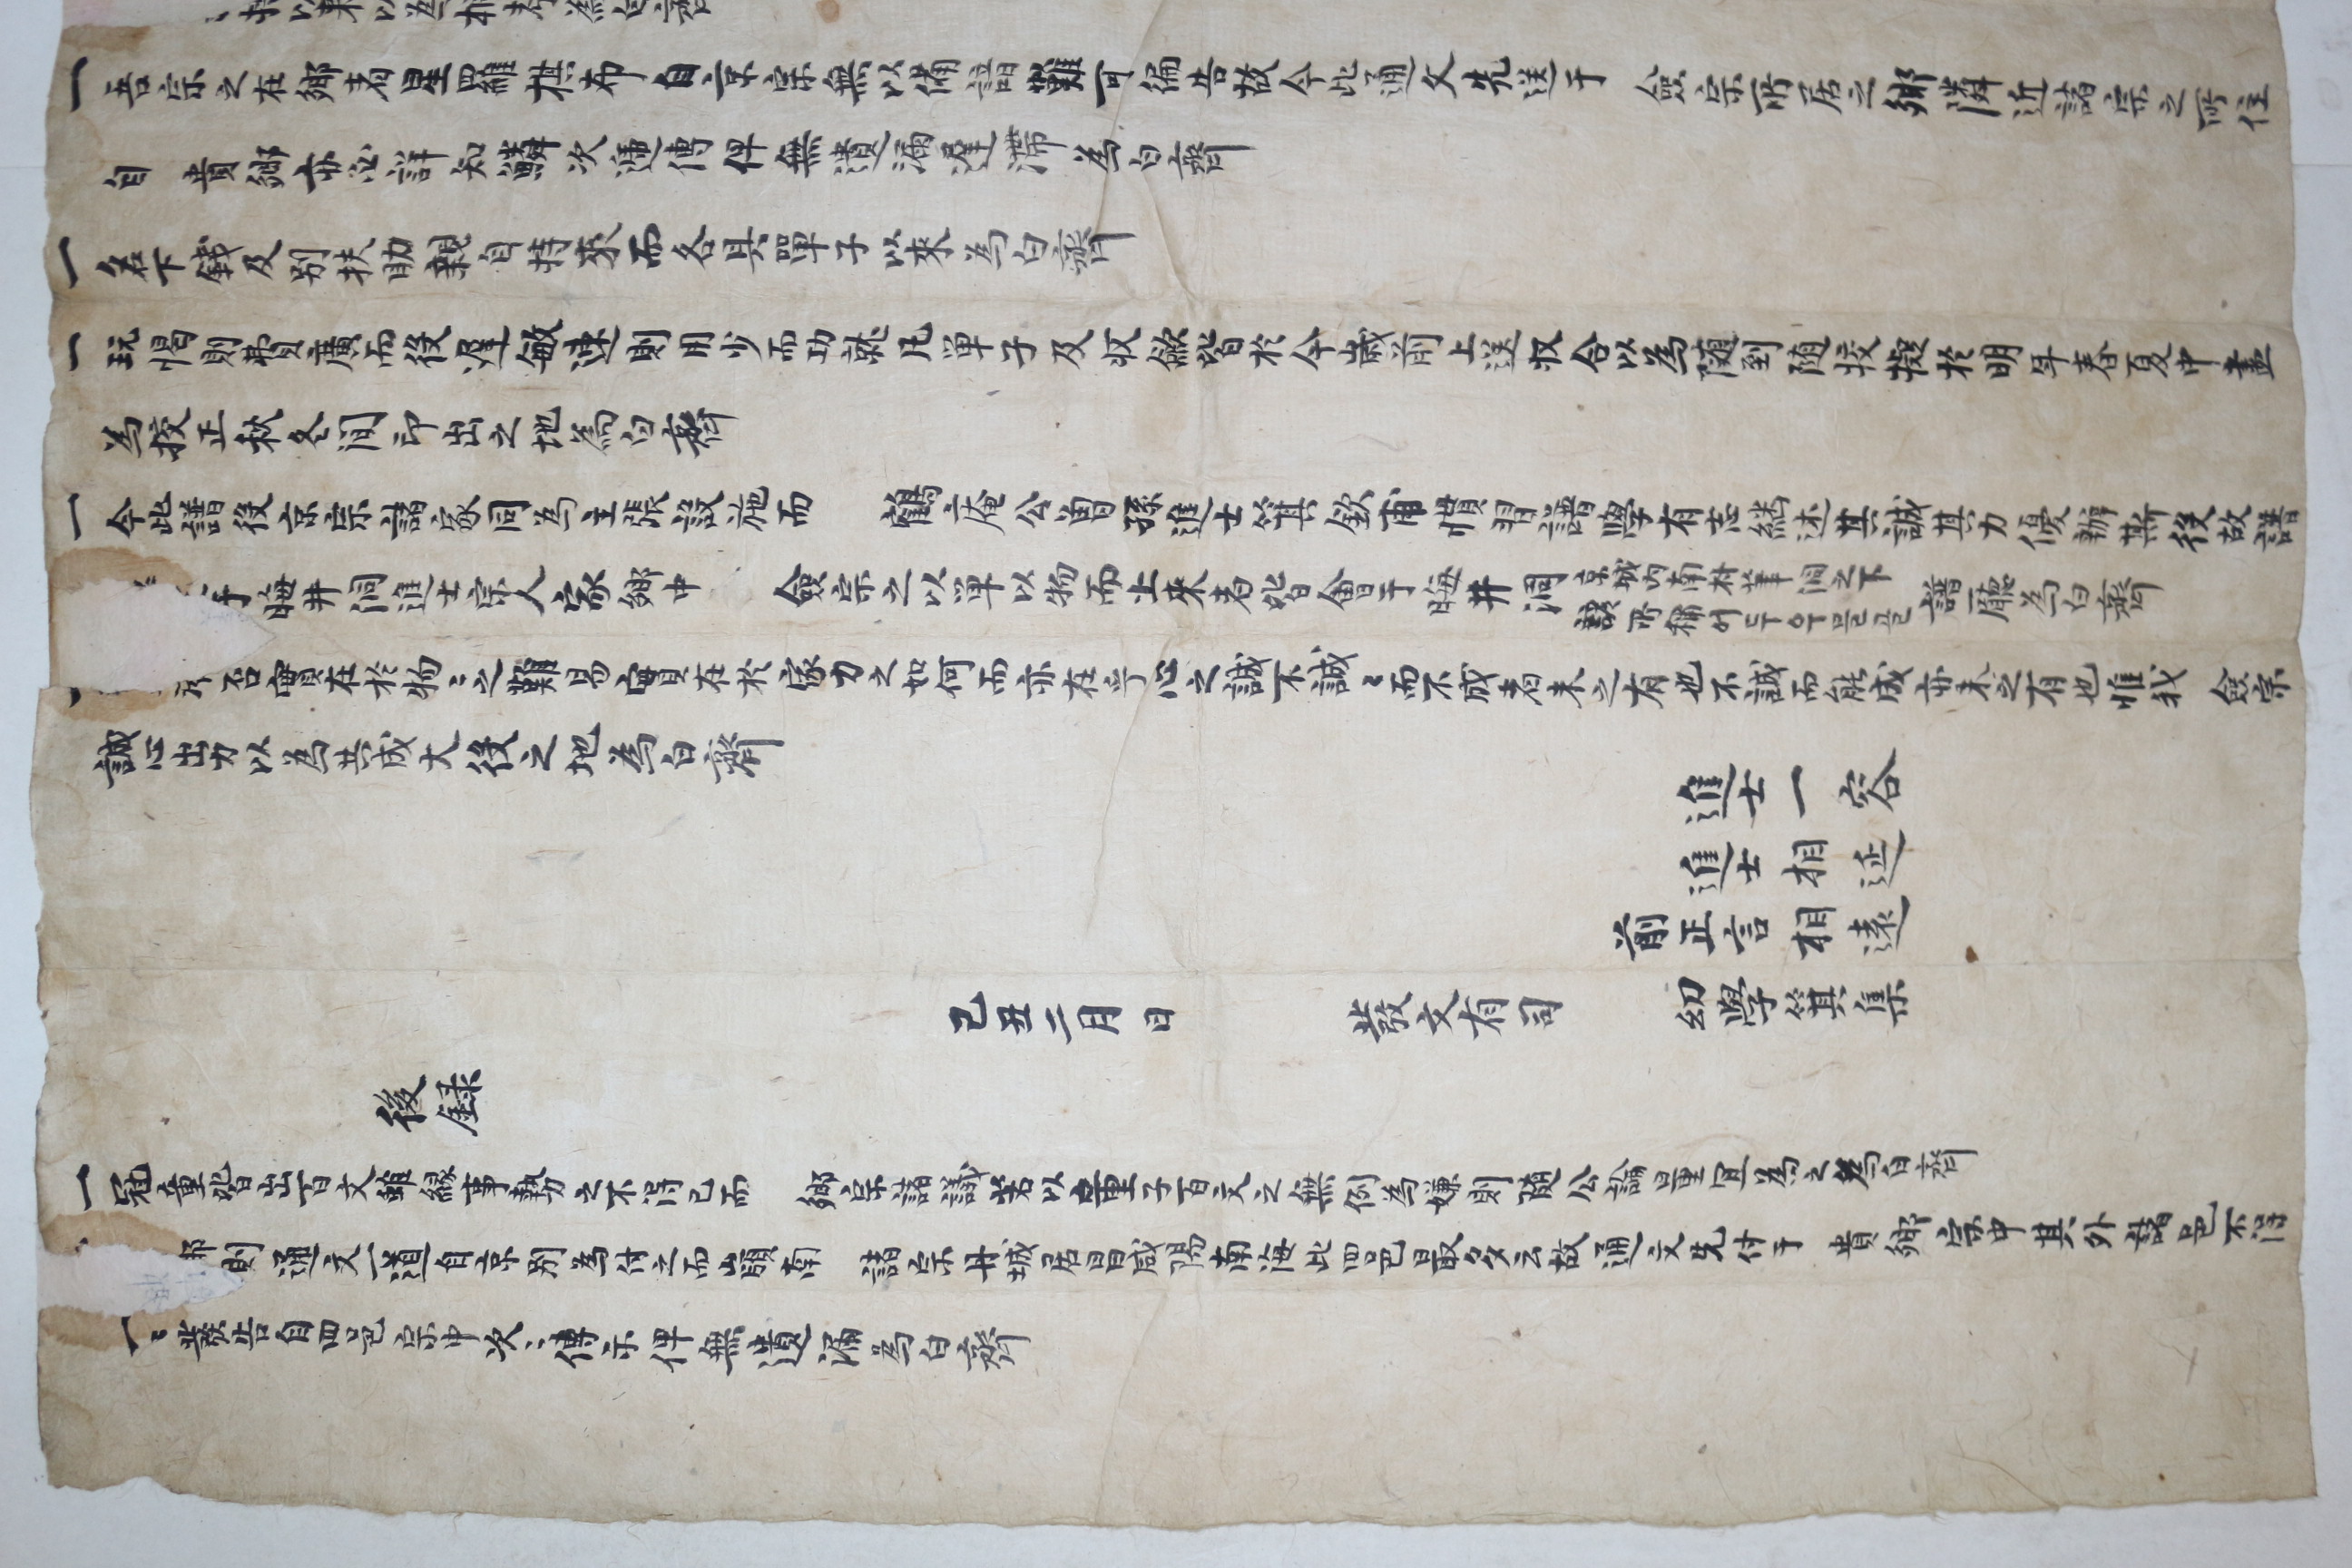 以來以爲相考爲白齊
一 吾宗之在鄕者星羅棋布自京宗無以備諳難可徧告故今此通文先送于 僉宗所居之鄕隣近諸宗之所住
自 貴鄕亦必詳知鱗次遞傳俾無遺漏遲滯爲白齊
一 名下錢及別扶助親自持來而各具單子以來爲白齊
一 玩愒則費廣而役遲敏速則用少而功就凡單子及收斂皆於今歲前上送收合以爲隨到隨校擬於明年春夏中畫
爲校正秋冬间印出之地爲白齊
一 今此譜役京宗諸家同爲主張設施而 鶴庵公胄孫進士箕欽甫慣習譜學有志繼述其誠其力優辦斯役故譜
于梅井洞進士宗人家鄕中 僉宗之以單以物而上來者皆會于梅井洞京城內南村筆洞之下諺所稱어두우물골譜廳爲白齊
否實在於物〻之難易實在於家力之如何而亦在乎心之誠不誠〻而不成者未之有也不誠而能成亦未之有也惟我 僉宗
誠心出力以爲共成大役之地爲白齊
進士一容
進士相延
前正言相遠
己丑二月 日 發文有司 幼學箕集
後錄
一 冠童皆出百文雖緣事勢之不得已而 鄕宗諸議若以童子百文之無例爲嫌則隨公論量宜爲之爲白齊
則通文一道自京別爲付之而嶺南 諸宗丹城居昌咸陽南海此四邑最多云故通文先付于 貴鄕宗中其外諸邑不得
一〻發告自四邑宗中次〻傳示俾無遺漏爲白齊